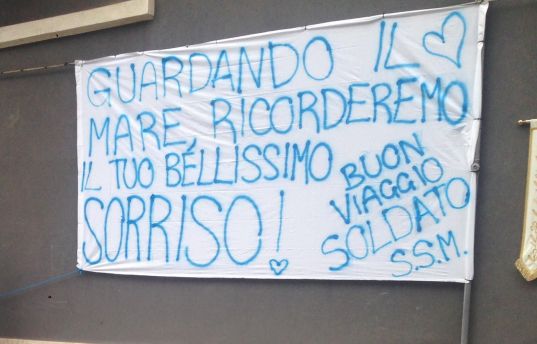 GUARDANDO IL
MARE, RICORDEREMO
IL TUO BÉLLISSIMO
SORRISO!
BUON
VIAGGIO
SOLDATO
S.S.M.